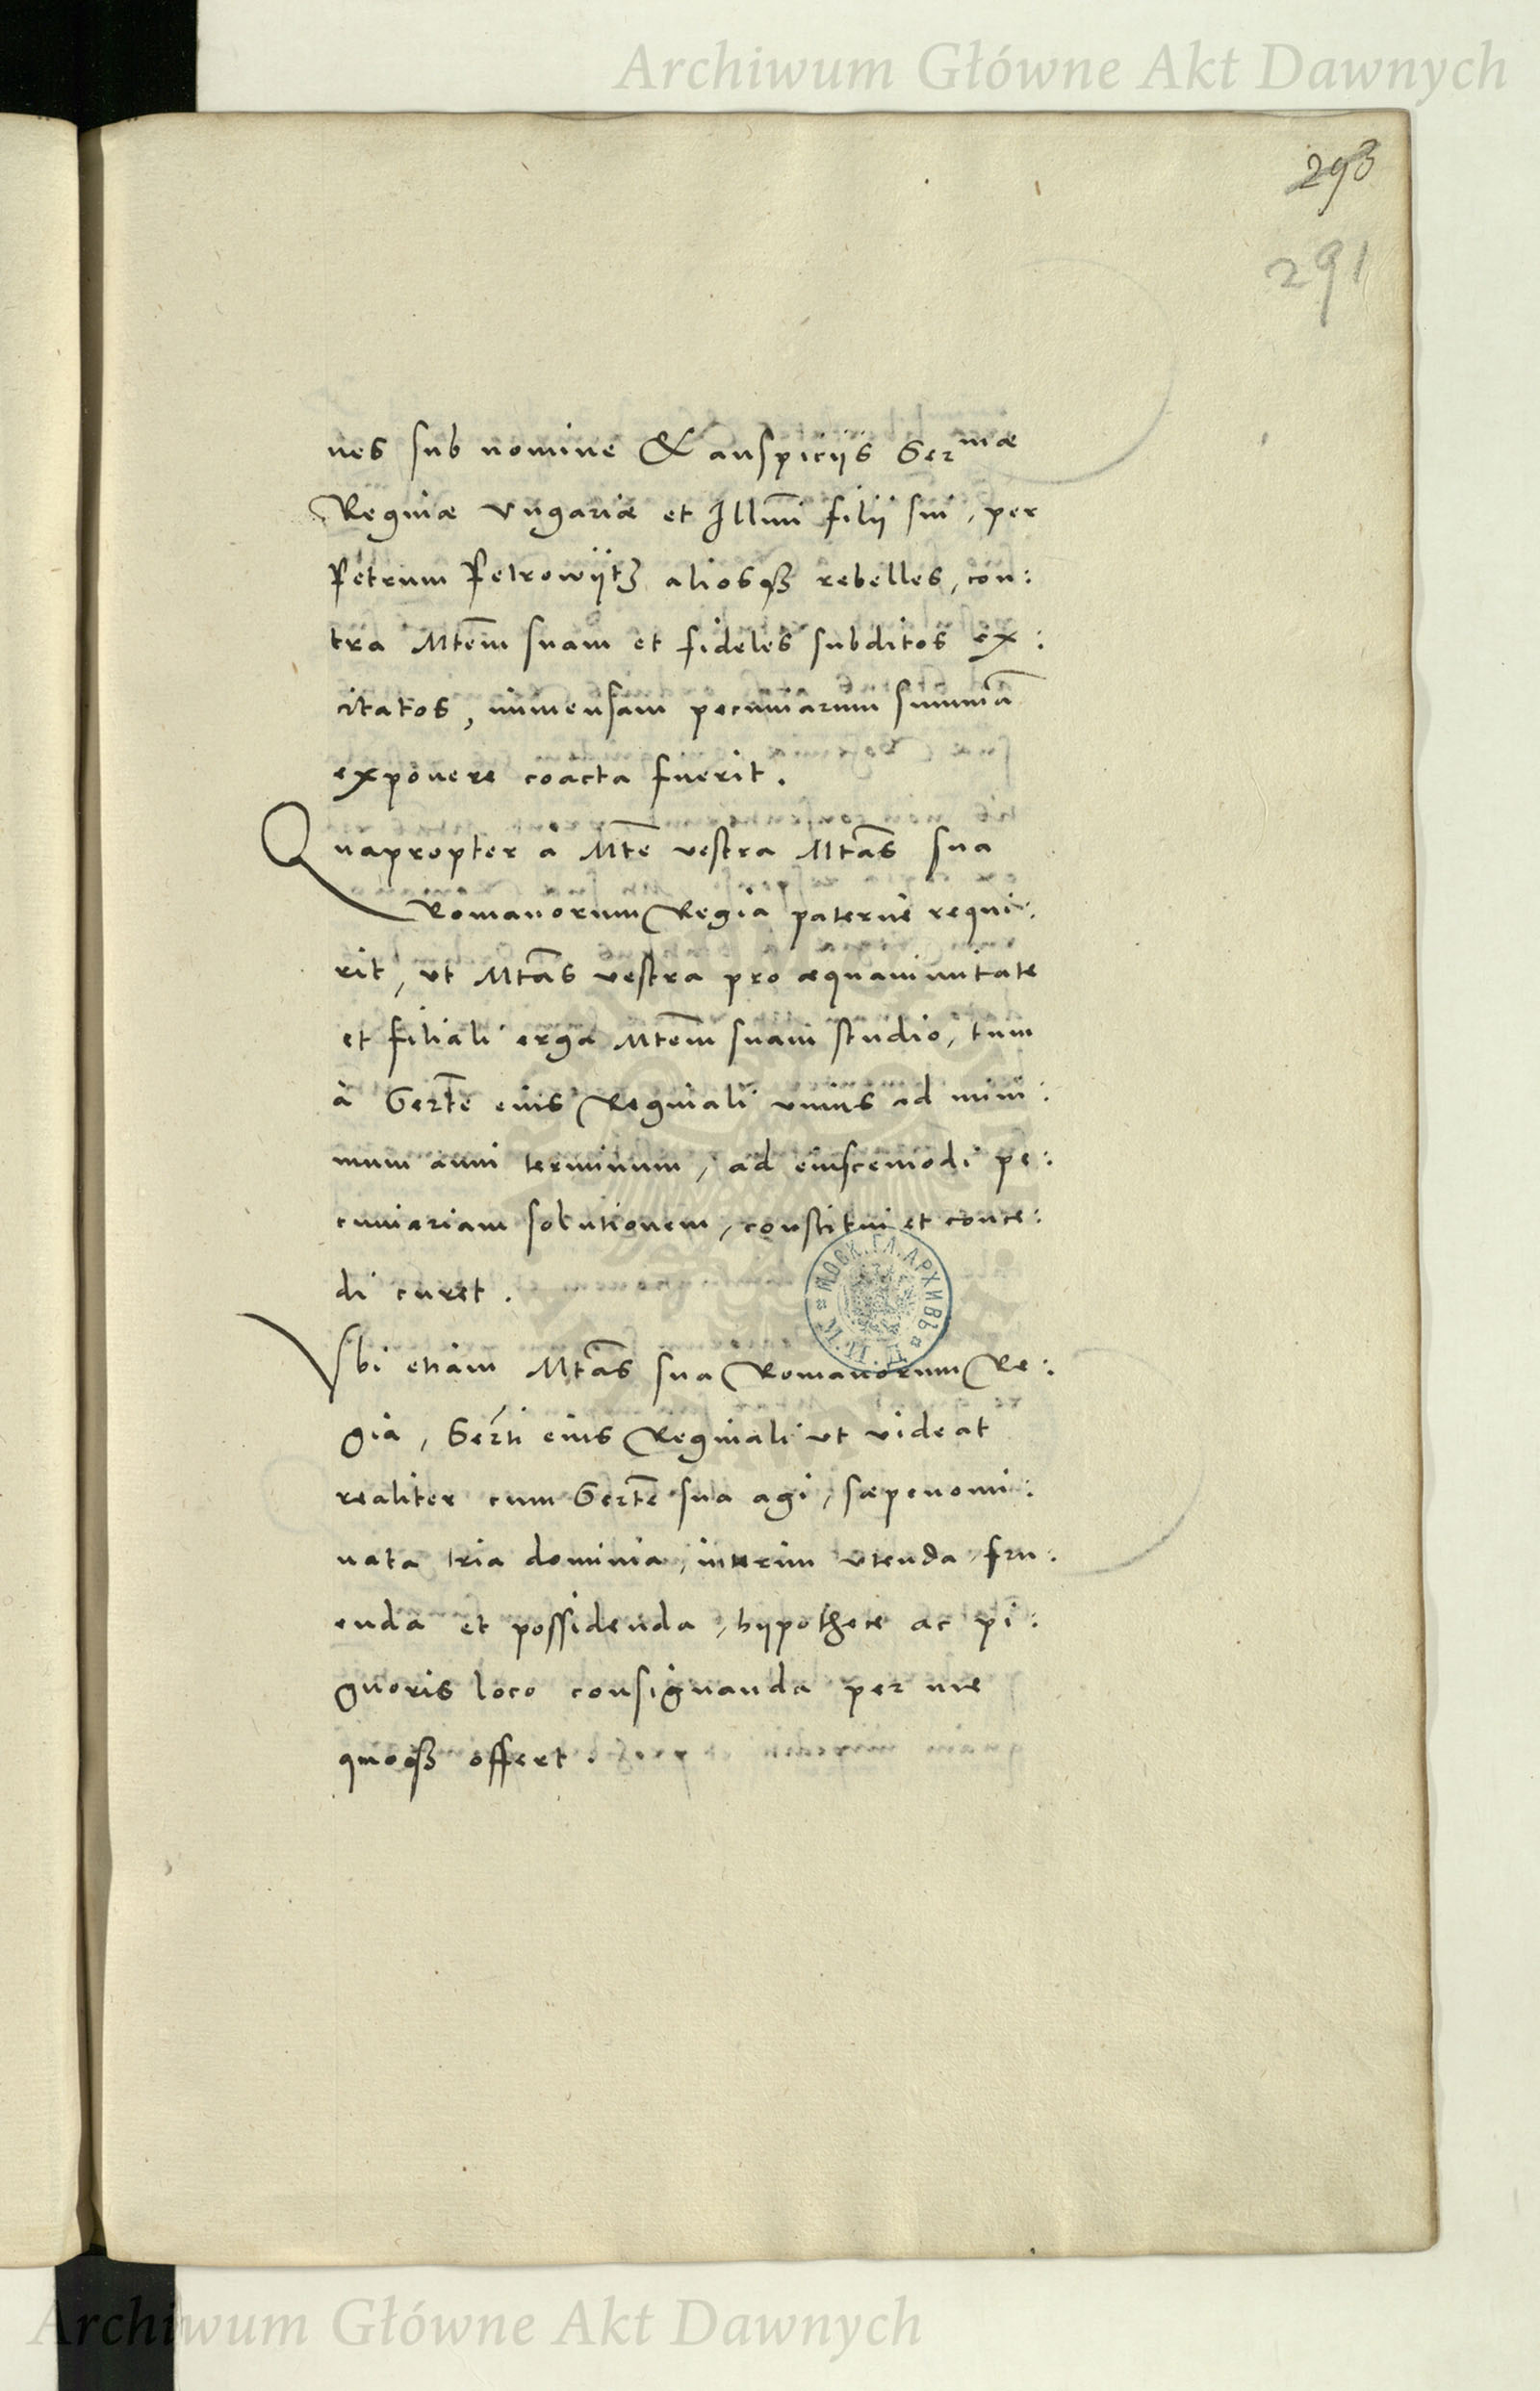 Archiwum Główne Akt Dawnych
293
291
nes sub nomine & auspicijs Ser^mæ
Reginæ Vngariæ et Illmi filij sui, per
Petrum Petrowijtz aliosqз rebelles, con:
tra Mtēm suam et fideles subditos ex:
citatos, immensam pecuniarum summā
exponere coacta fuerit.
Quapropter a Mte vestra Mtas sua
Romanorum Regia paterne requi:
rit, ut Mtas vestra pro æquanimitate
et filiali erga Mtem suam studio, tum
à Serte eius Reginali unius ad mini:
mum anni terminum, ad eiuscemodi pe:
cuniariam solutionem, constitui et conce:
di curet.
МОСК. ГЛ. АРХИВЪ
Vbi etiam Mtas sua Romanorum Re:
gia, Serti eius Reginali ut videat
realiter cum Serte sua agi, sæpenomi:
nata tria dominia, interim utenda, fru:
enda et possidenda, hypothece ac pi:
gnoris loco consignanda per me
quoqз offert.
Archiwum Główne Akt Dawnych